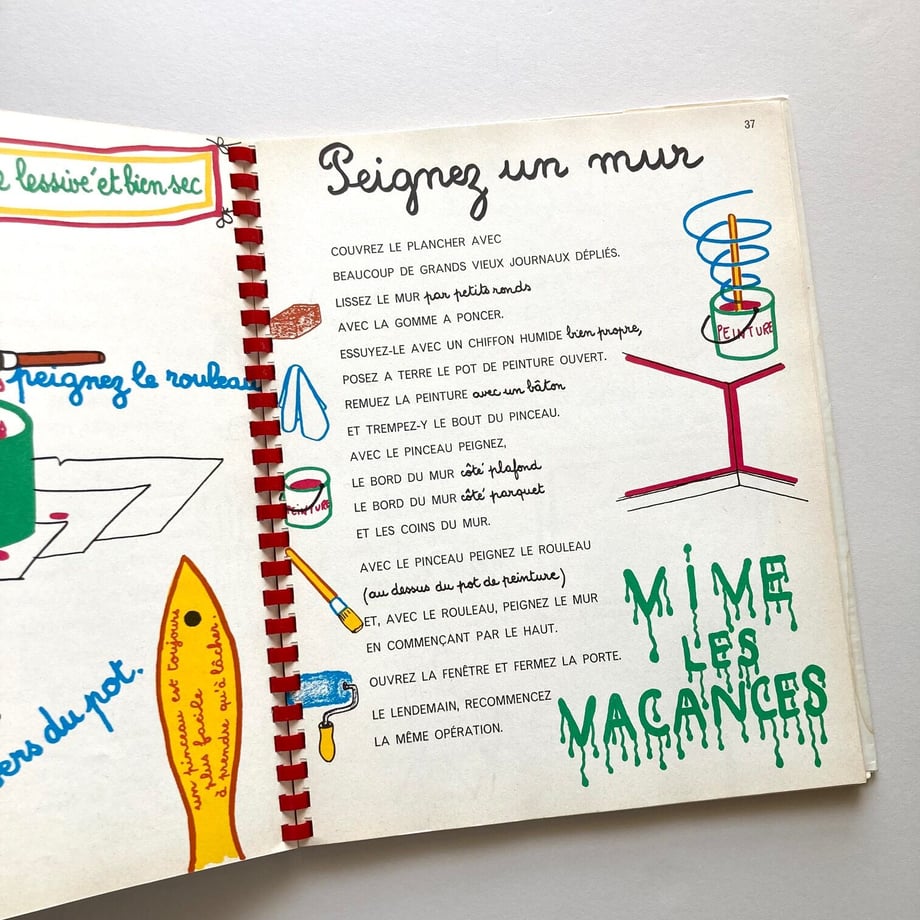 lessivé et bien sec
peignez le rouleau
un pinceau est toujours
plus facile
à prendre qu'à lâcher.
du pot.
37
Peignez un mur
COUVREZ LE PLANCHER AVEC
BEAUCOUP DE GRANDS VIEUX JOURNAUX DÉPLIÉS.
LISSEZ LE MUR par petits ronds
AVEC LA GOMME A PONCER.
ESSUYEZ-LE AVEC UN CHIFFON HUMIDE bien propre,
POSEZ A TERRE LE POT DE PEINTURE OUVERT.
REMUEZ LA PEINTURE avec un bâton
ET TREMPEZ-Y LE BOUT DU PINCEAU.
AVEC LE PINCEAU PEIGNEZ,
LE BORD DU MUR côté plafond
LE BORD DU MUR côté parquet
ET LES COINS DU MUR.
AVEC LE PINCEAU PEIGNEZ LE ROULEAU
(au dessus du pot de peinture)
ET, AVEC LE ROULEAU, PEIGNEZ LE MUR
EN COMMENÇANT PAR LE HAUT.
OUVREZ LA FENÊTRE ET FERMEZ LA PORTE.
LE LENDEMAIN, RECOMMENCEZ
LA MÊME OPÉRATION.
PEINTURE
PEINTURE
MiME
LES
VACANCES